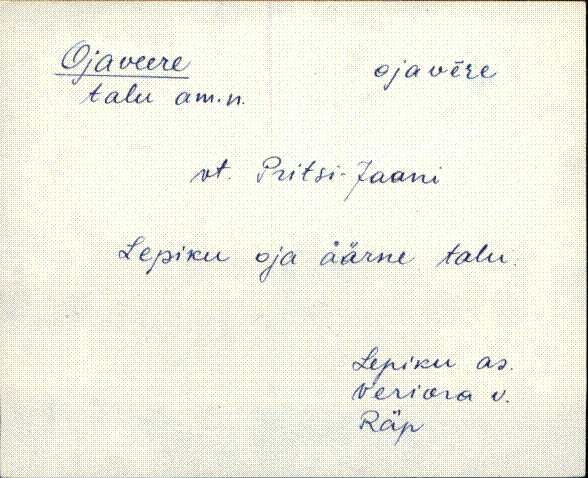 Ojaveere ojavēre
talu am.n.
vt. Pritsi-Jaani
Lepiku oja äärne talu.
Lepiku as.
Veriora v.
Räp